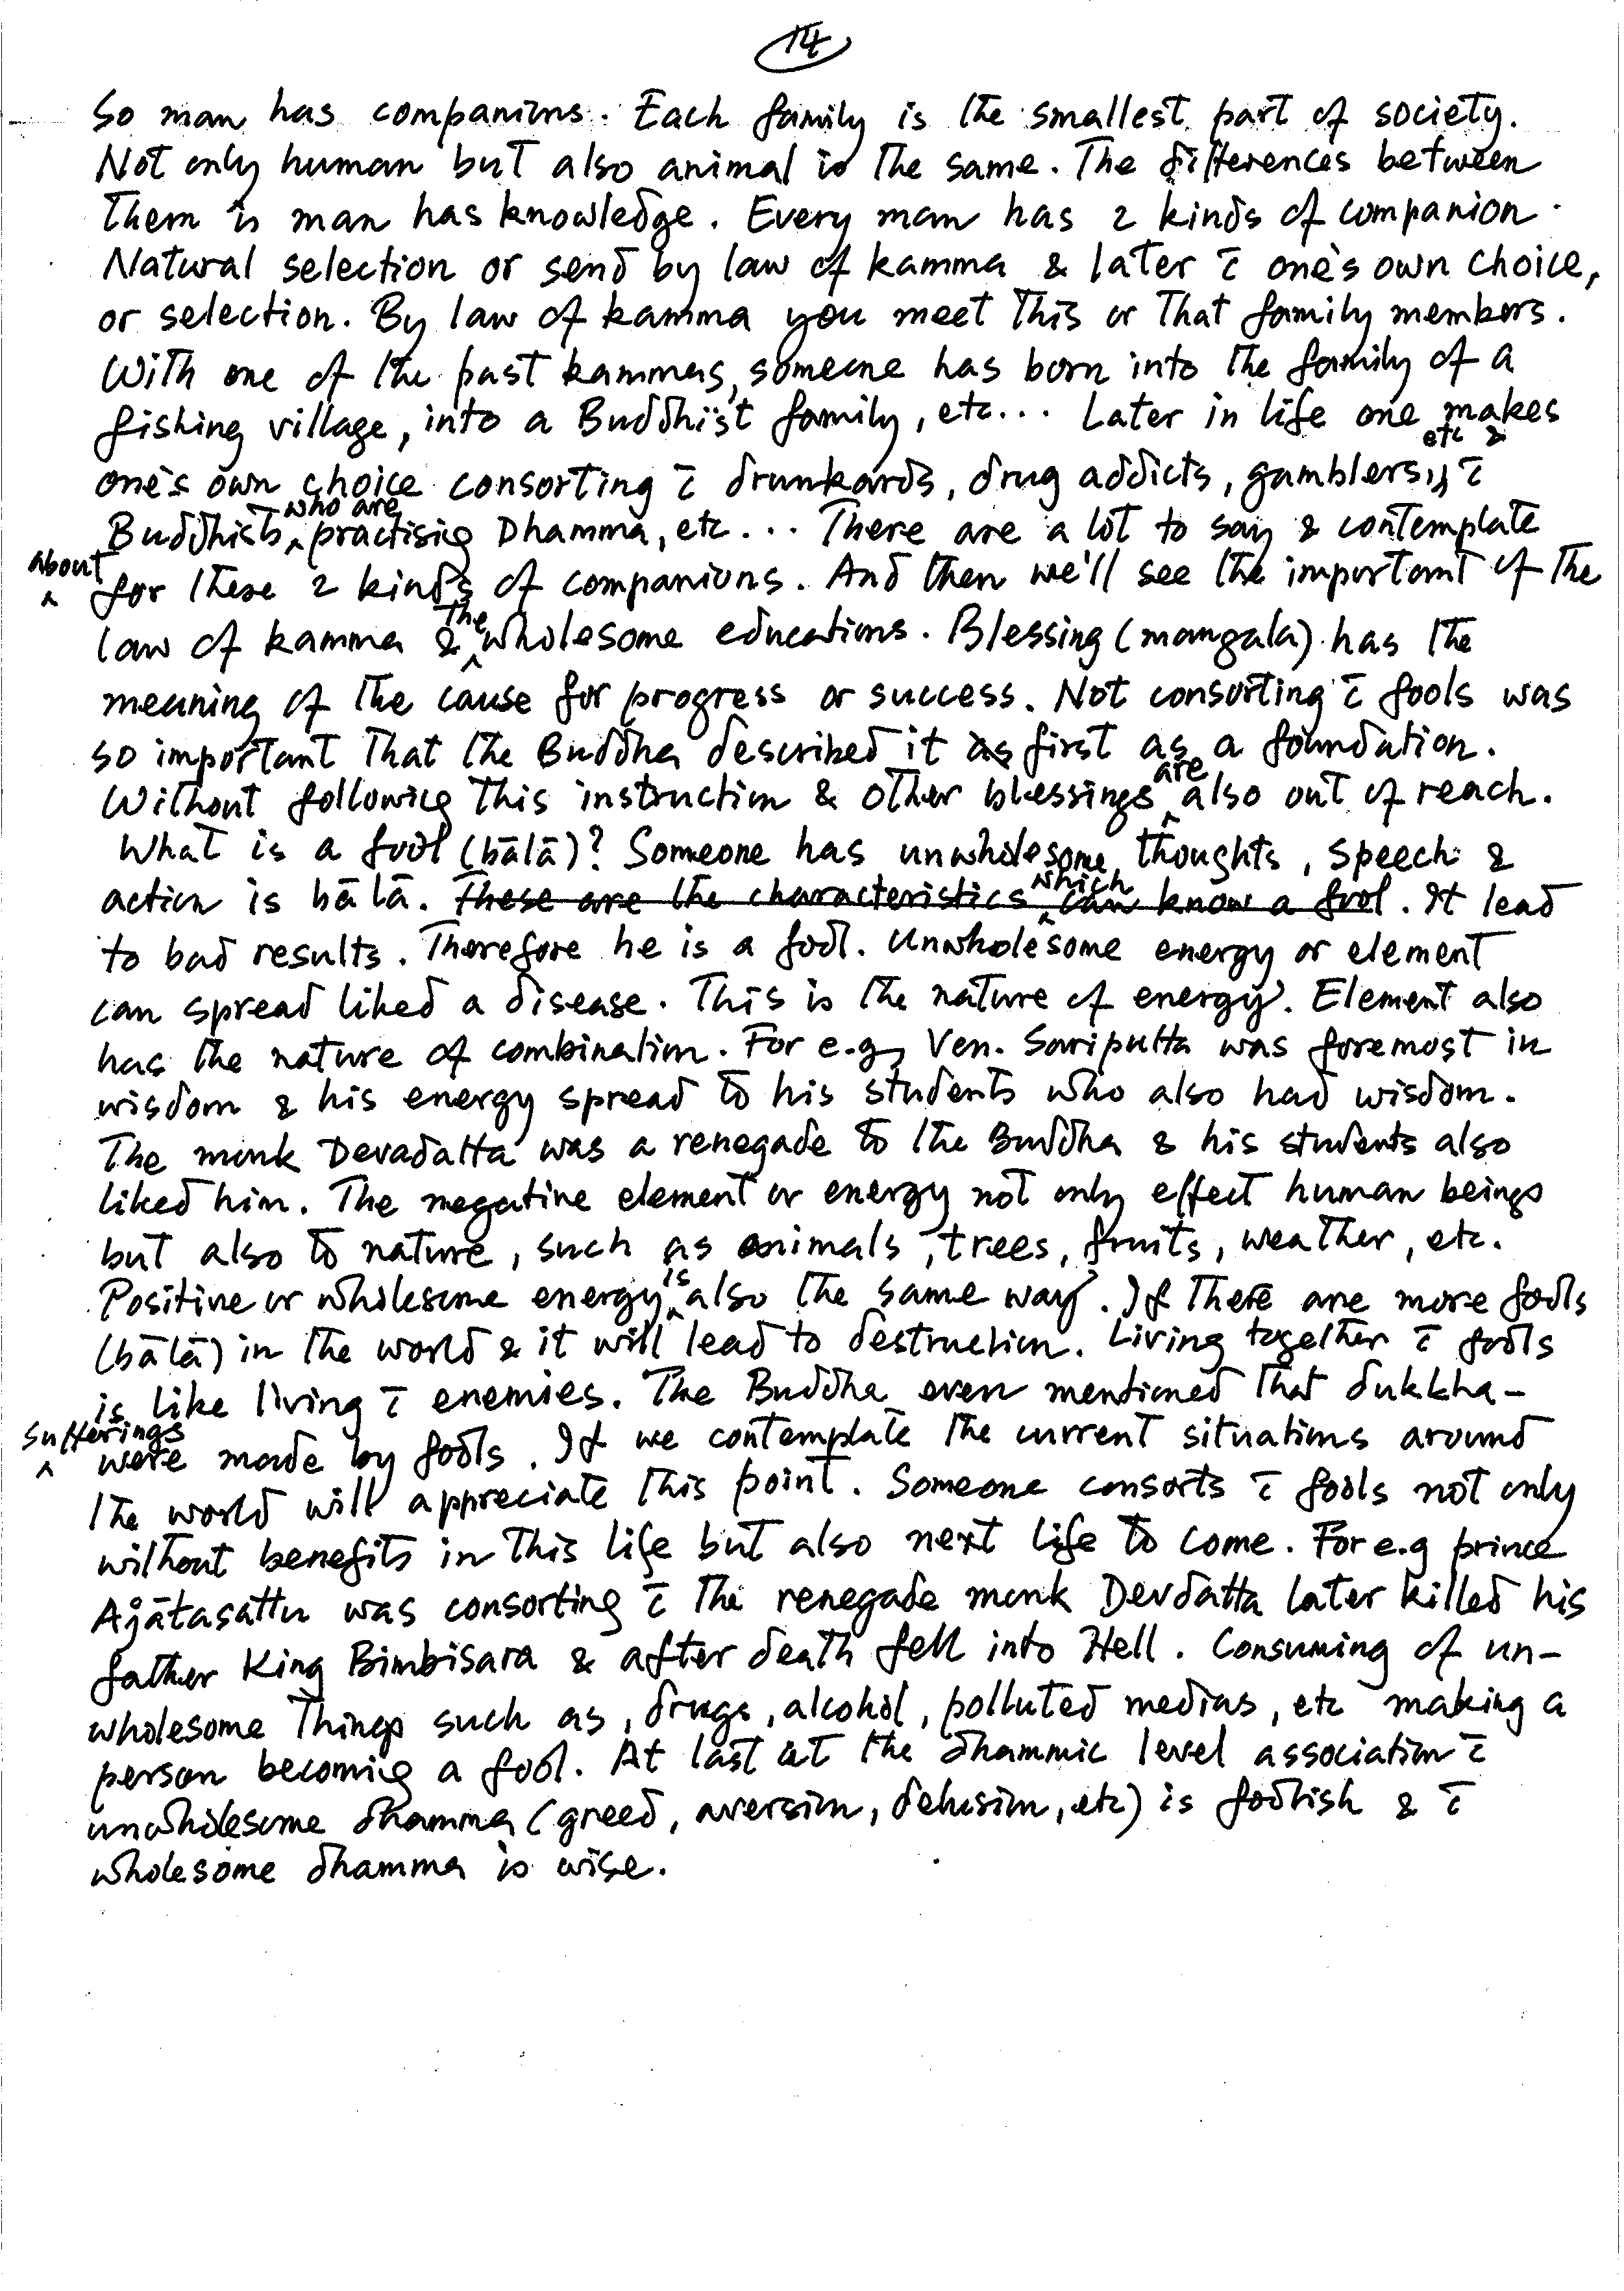 14
So man has companions. Each family is the smallest part of society.
Not only human but also animal is the same. The differences between
them is man has knowledge. Every man has 2 kinds of companion.
Natural selection or send by law of kamma & later c̄ one's own choice,
or selection. By law of kamma you meet this or that family members.
With one of the past kammas, someone has born into the family of a
fishing village, into a Buddhist family, etc... Later in life one makes
one's own choice consorting c̄ drunkards, drug addicts, gamblers, etc & c̄
Buddhists who are practising Dhamma, etc... There are a lot to say & contemplate
about for these 2 kinds of companions. And then we'll see the important of the
law of kamma & the wholesome educations. Blessing (mangala) has the
meaning of the cause for progress or success. Not consorting c̄ fools was
so important that the Buddha described it as first as a foundation.
Without following this instruction & other blessings are also out of reach.
What is a fool (bālā)? Someone has unwholesome thoughts, speech &
action is bālā. These are the characteristics which can know a fool. It lead
to bad results. Therefore he is a fool. Unwholesome energy or element
can spread liked a disease. This is the nature of energy. Element also
has the nature of combination. For e.g, Ven. Sariputta was foremost in
wisdom & his energy spread to his students who also had wisdom.
The monk Devadatta was a renegade to the Buddha & his students also
liked him. The negative element or energy not only effect human beings
but also to nature, such as animals, trees, fruits, weather, etc.
Positive or wholesome energy is also the same way. If there are more fools
(bālā) in the world & it will lead to destruction. Living together c̄ fools
is like living c̄ enemies. The Buddha even mentioned that dukkha-
sufferings were made by fools. If we contemplate the current situations around
the world will appreciate this point. Someone consorts c̄ fools not only
without benefits in this life but also next life to come. For e.g prince
Ajātasattu was consorting c̄ the renegade monk Devdatta later killed his
father King Bimbisara & after death fell into Hell. Consuming of un-
wholesome things such as, drugs, alcohol, polluted medias, etc making a
person becoming a fool. At last at the dhammic level association c̄
unwholesome dhamma (greed, aversion, delusion, etc) is foolish & c̄
wholesome dhamma is wise.